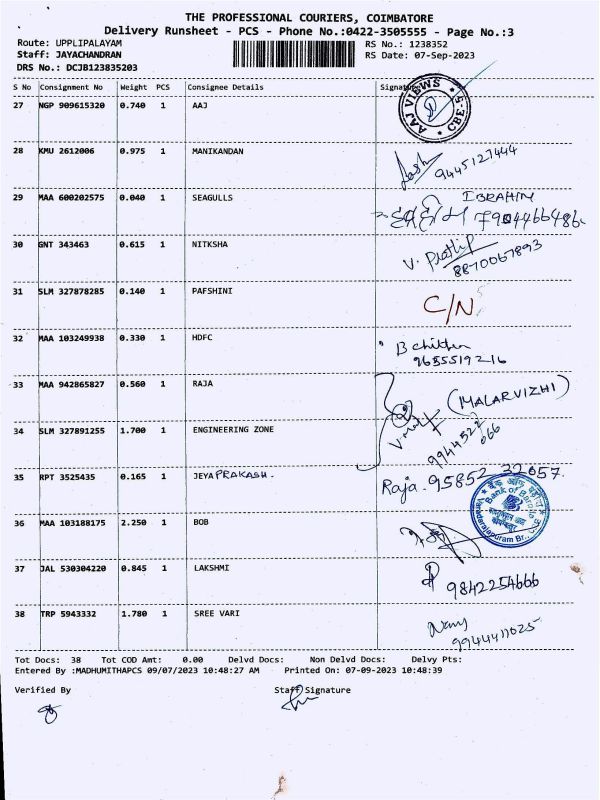 THE PROFESSIONAL COURIERS, COIMBATORE
Delivery Runsheet - PCS - Phone No.:0422-3505555 - Page No.:3
Route: UPPLIPALAYAM RS No.: 1238352
Staff: JAYACHANDRAN RS Date: 07-Sep-2023
DRS No.: DCJB123835203
S No Consignment No Weight PCS Consignee Details Signature
27 NGP 909615320 0.740 1 AAJ
AAJ VIEWS CBE-5
28 KMU 2612006 0.975 1 MANIKANDAN
9445127444
29 MAA 600202575 0.040 1 SEAGULLS IBRAHIM
30 GNT 343463 0.615 1 NITKSHA V. Pratip
8870067893
31 SLM 327878285 0.140 1 PAFSHINI C/N
32 MAA 103249938 0.330 1 HDFC B
9655519216
33 MAA 942865827 0.560 1 RAJA (MALARVIZHI)
34 SLM 327891255 1.700 1 ENGINEERING ZONE 9944522
666
35 RPT 3525435 0.165 1 JEYAPRAKASH. Raja. 95852 32057.
Bank of Baroda
36 MAA 103188175 2.250 1 BOB
37 JAL 530304220 0.845 1 LAKSHMI 9842254666
38 TRP 5943332 1.780 1 SREE VARI
9944411025
Tot Docs: 38 Tot COD Amt: 0.00 Delvd Docs: Non Delvd Docs: Delvy Pts:
Entered By :MADHUMITHAPCS 09/07/2023 10:48:27 AM Printed On: 07-09-2023 10:48:39
Verified By Staff Signature